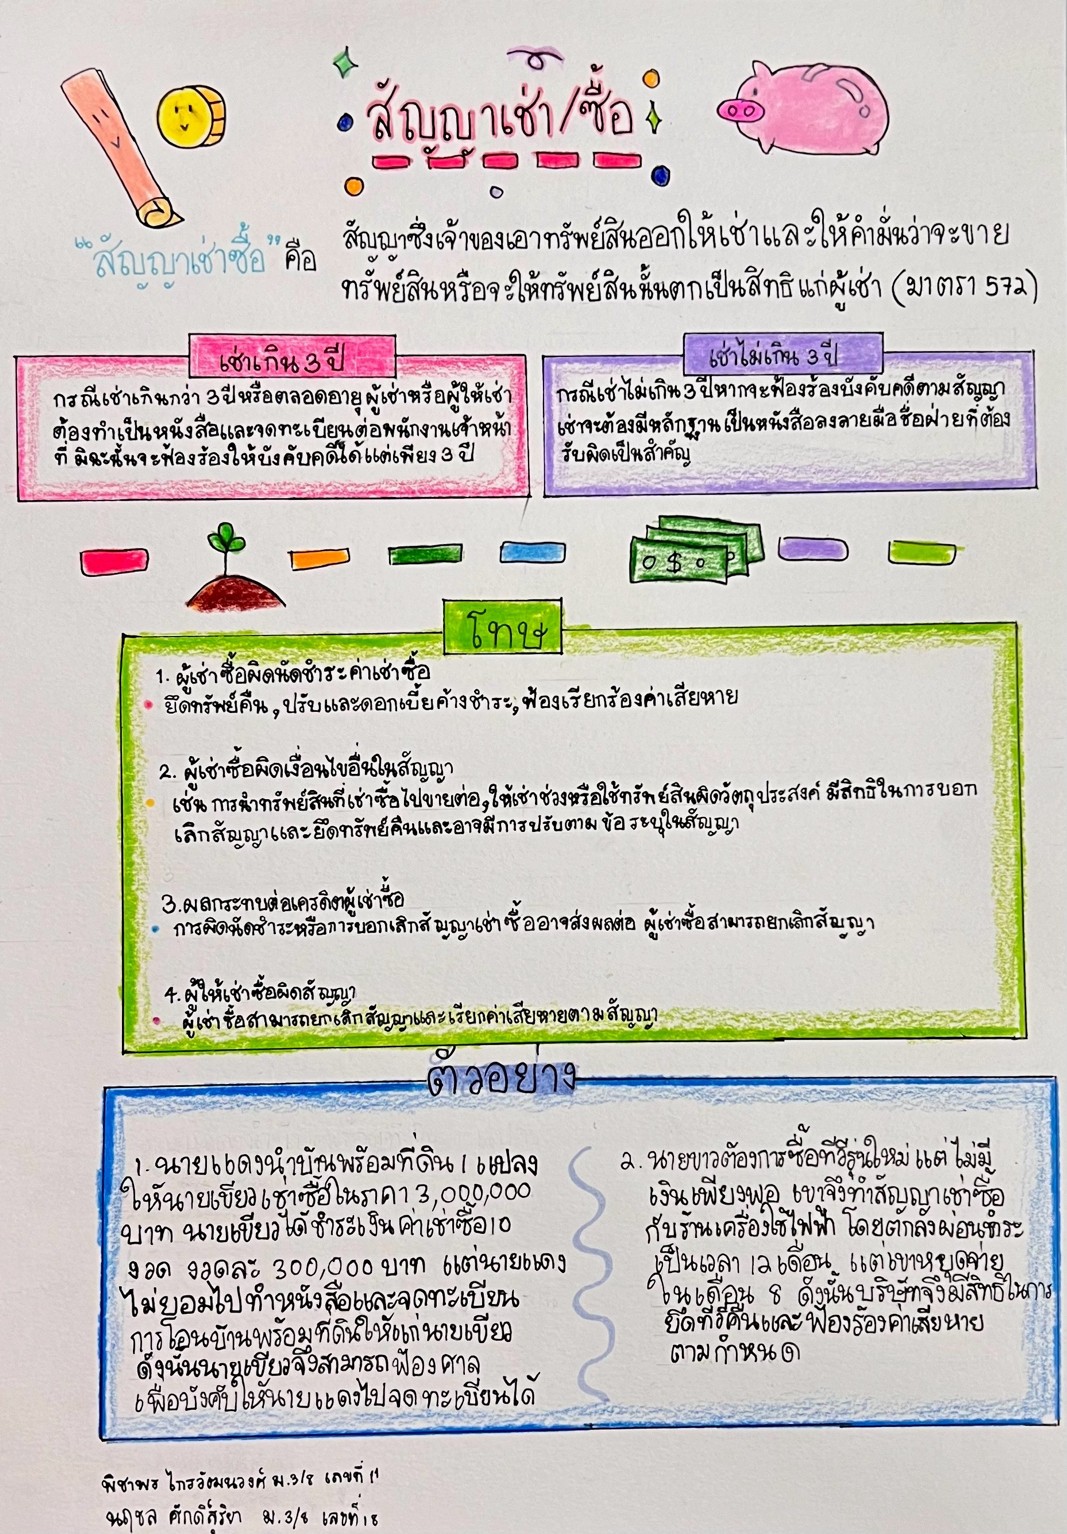 สัญญาเช่า/ซื้อ
"สัญญาเช่าซื้อ" คือ
สัญญาซึ่งเจ้าของเอาทรัพย์สินออกให้เช่าและให้คำมั่นว่าจะขาย
ทรัพย์สินหรือจะให้ทรัพย์สินนั้นตกเป็นสิทธิแก่ผู้เช่า (มาตรา 572)
เช่าเกิน 3 ปี
กรณีเช่าเกินกว่า 3 ปีหรือตลอดอายุผู้เช่าหรือผู้ให้เช่า
ต้องทำเป็นหนังสือและจดทะเบียนต่อพนักงานเจ้าหน้า
ที่ มิฉะนั้นจะฟ้องร้องให้บังคับคดีได้แต่เพียง 3 ปี
เช่าไม่เกิน 3 ปี
กรณีเช่าไม่เกิน 3 ปีหากจะฟ้องร้องบังคับคดีตามสัญญา
เช่าจะต้องมีหลักฐานเป็นหนังสือลงลายมือชื่อฝ่ายที่ต้อง
รับผิดเป็นสำคัญ
$
โทษ
1. ผู้เช่าซื้อผิดนัดชำระค่าเช่าซื้อ
ยึดทรัพย์คืน, ปรับและดอกเบี้ยค้างชำระ, ฟ้องเรียกร้องค่าเสียหาย
2. ผู้เช่าซื้อผิดเงื่อนไขอื่นในสัญญา
เช่น การนำทรัพย์สินที่เช่าซื้อไปขายต่อ, ให้เช่าช่วงหรือใช้ทรัพย์สินผิดวัตถุประสงค์ มีสิทธิในการบอก
เลิกสัญญาและยึดทรัพย์คืนและอาจมีการปรับตามข้อระบุในสัญญา
3. ผลกระทบต่อเครดิตผู้เช่าซื้อ
การผิดนัดชำระหรือการบอกเลิกสัญญาเช่าซื้ออาจส่งผลต่อ ผู้เช่าซื้อสามารถยกเลิกสัญญา
4. ผู้ให้เช่าซื้อผิดสัญญา
ผู้เช่าซื้อสามารถยกเลิกสัญญาและเรียกค่าเสียหายตามสัญญา
ตัวอย่าง
1. นายแดงนำบ้านพร้อมที่ดิน 1 แปลง
ให้นายเขียวเช่าซื้อในราคา 3,000,000
บาท นายเขียวได้ชำระเงินค่าเช่าซื้อ 10
งวด งวดละ 300,000 บาท แต่นายแดง
ไม่ยอมไปทำหนังสือและจดทะเบียน
การโอนบ้านพร้อมที่ดินให้แก่นายเขียว
ดังนั้นนายเขียวจึงสามารถฟ้องศาล
เพื่อบังคับให้นายแดงไปจดทะเบียนได้
2. นายขาวต้องการซื้อทีวีรุ่นใหม่แต่ไม่มี
เงินเพียงพอ เขาจึงทำสัญญาเช่าซื้อ
กับร้านเครื่องใช้ไฟฟ้า โดยตกลงผ่อนชำระ
เป็นเวลา 12 เดือน แต่เขาหยุดจ่าย
ในเดือน 8 ดังนั้นบริษัทจึงมีสิทธิในการ
ยึดทีวีคืนและฟ้องร้องค่าเสียหาย
ตามกำหนด
พิชาพร ม.3/8 เลขที่ 11
ศักดิ์สุริยา ม.3/8 เลขที่ 18